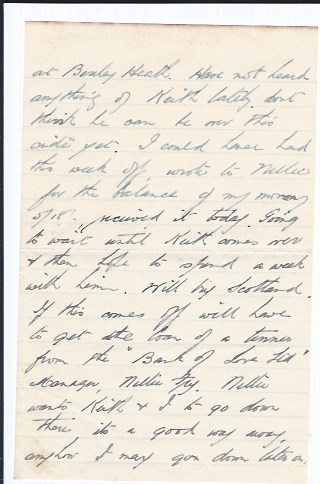 at Bexley Heath. Have not heard
anything of Keith lately. dont
think he can be over this
side yet. I could have had
this week off, wrote to Nellie
for the balance of my money
received it today. Going
to wait until Keith comes over
& then hope to spend a week
with him. Will try Scotland.
If this comes off will have
to get the loan of a tenner
from the "Bank of Love Ltd"
Manager, Nellie Fry. Nellie
wants Keith & I to go down
there its a good way away,
anyhow I may go down later on.